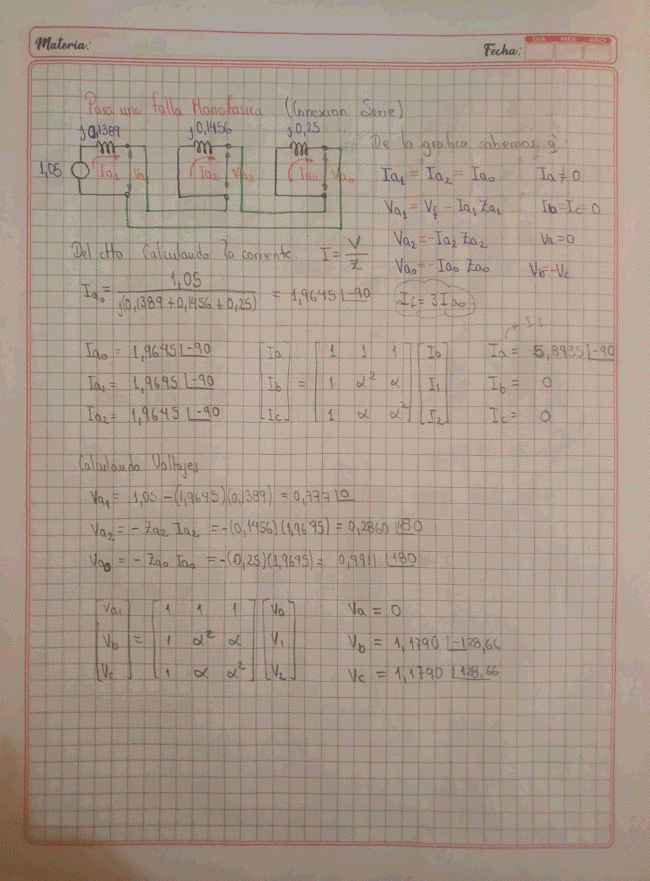 Materia:
Fecha:
DIA MES AÑO
Para una falla Monofasica (Conexion Serie)
j0,1389 j0,1456 j0,25
1,05 Ia₁ Va₁ Ia₂ Va₂ Ia₀ Va₀
De la grafica sabemos q'
Ia₁ = Ia₂ = Ia₀ Ia ≠ 0
Va₁ = Vf - Ia₁ Za₁ Ib = Ic = 0
Va₂ = -Ia₂ Za₂ Va = 0
Va₀ = -Ia₀ Za₀ Vb = Vc
Del ctto Calculando la corriente. I = V/Z
Ia₀ = 1,05 / j(0,1389 + 0,1456 + 0,25) = 1,9645 ∠-90 If = 3Ia₀
If
Ia₀ = 1,9645 ∠-90 [Ia] [1 1 1] [I₀] Ia = 5,8935 ∠-90
Ia₁ = 1,9645 ∠-90 [Ib] = [1 α² α] [I₁] Ib = 0
Ia₂ = 1,9645 ∠-90 [Ic] [1 α α²] [I₂] Ic = 0
Calculando Voltajes
Va₁ = 1,05 - (1,9645)(0,1389) = 0,777 ∠0
Va₂ = - Za₂ Ia₂ = -(0,1456)(1,9645) = 0,2860 ∠180
Va₀ = - Za₀ Ia₀ = -(0,25)(1,9645) = 0,4911 ∠180
[Va₁] [1 1 1] [V₀] Va = 0
[Vb] = [1 α² α] [V₁] Vb = 1,1790 ∠-128,66
[Vc] [1 α α²] [V₂] Vc = 1,1790 ∠128,66